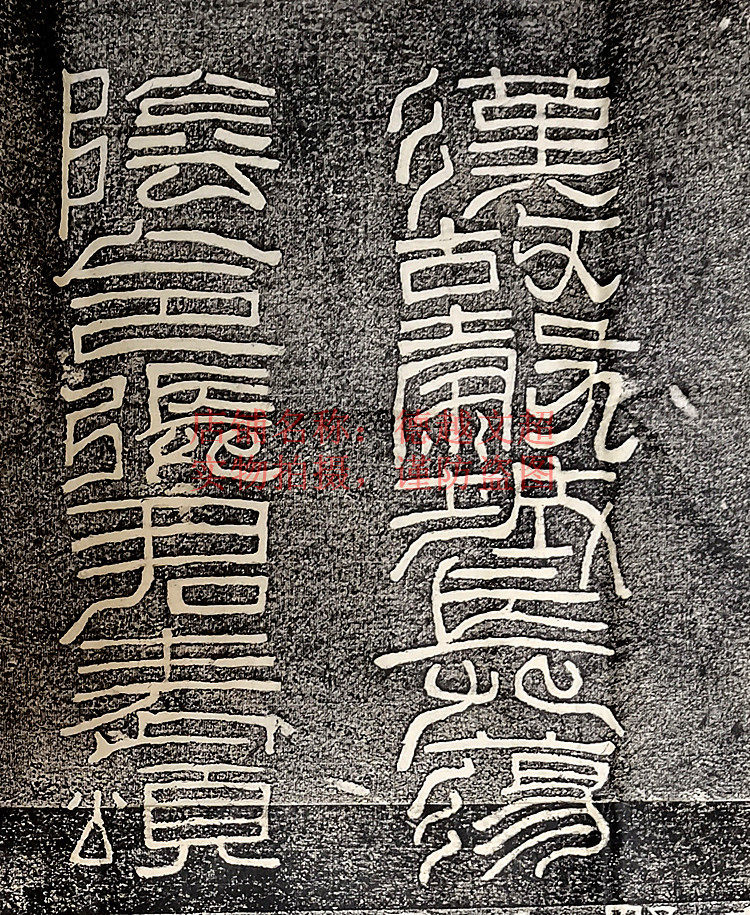 漢故穀城長蕩
陰令張君表頌
店铺名称：越文超
实物拍摄，谨防盗图